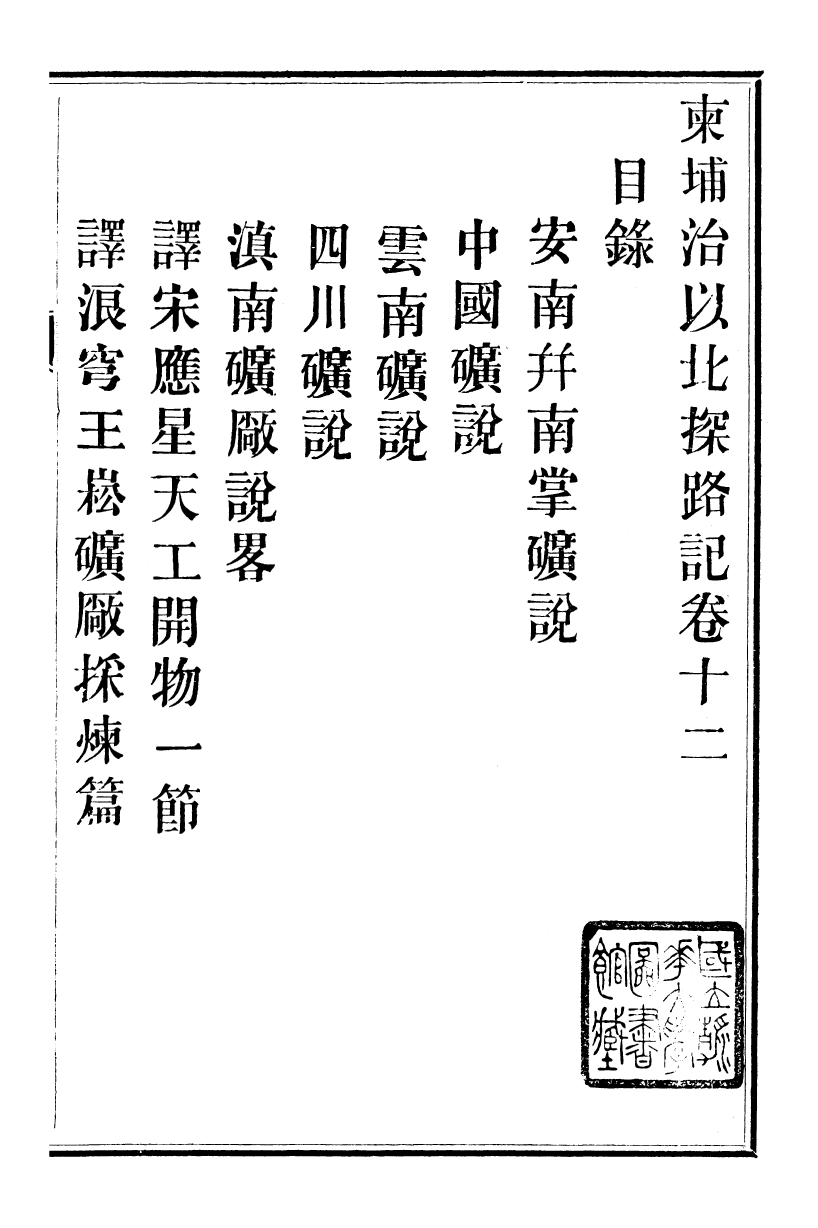 柬埔治以北探路記卷十二
目錄
安南幷南掌礦說
中國礦說
雲南礦說
四川礦說
滇南礦厰說畧
譯宋應星天工開物一節
譯浪穹王崧礦厰採煉篇
國立
華大學
圖書
館藏